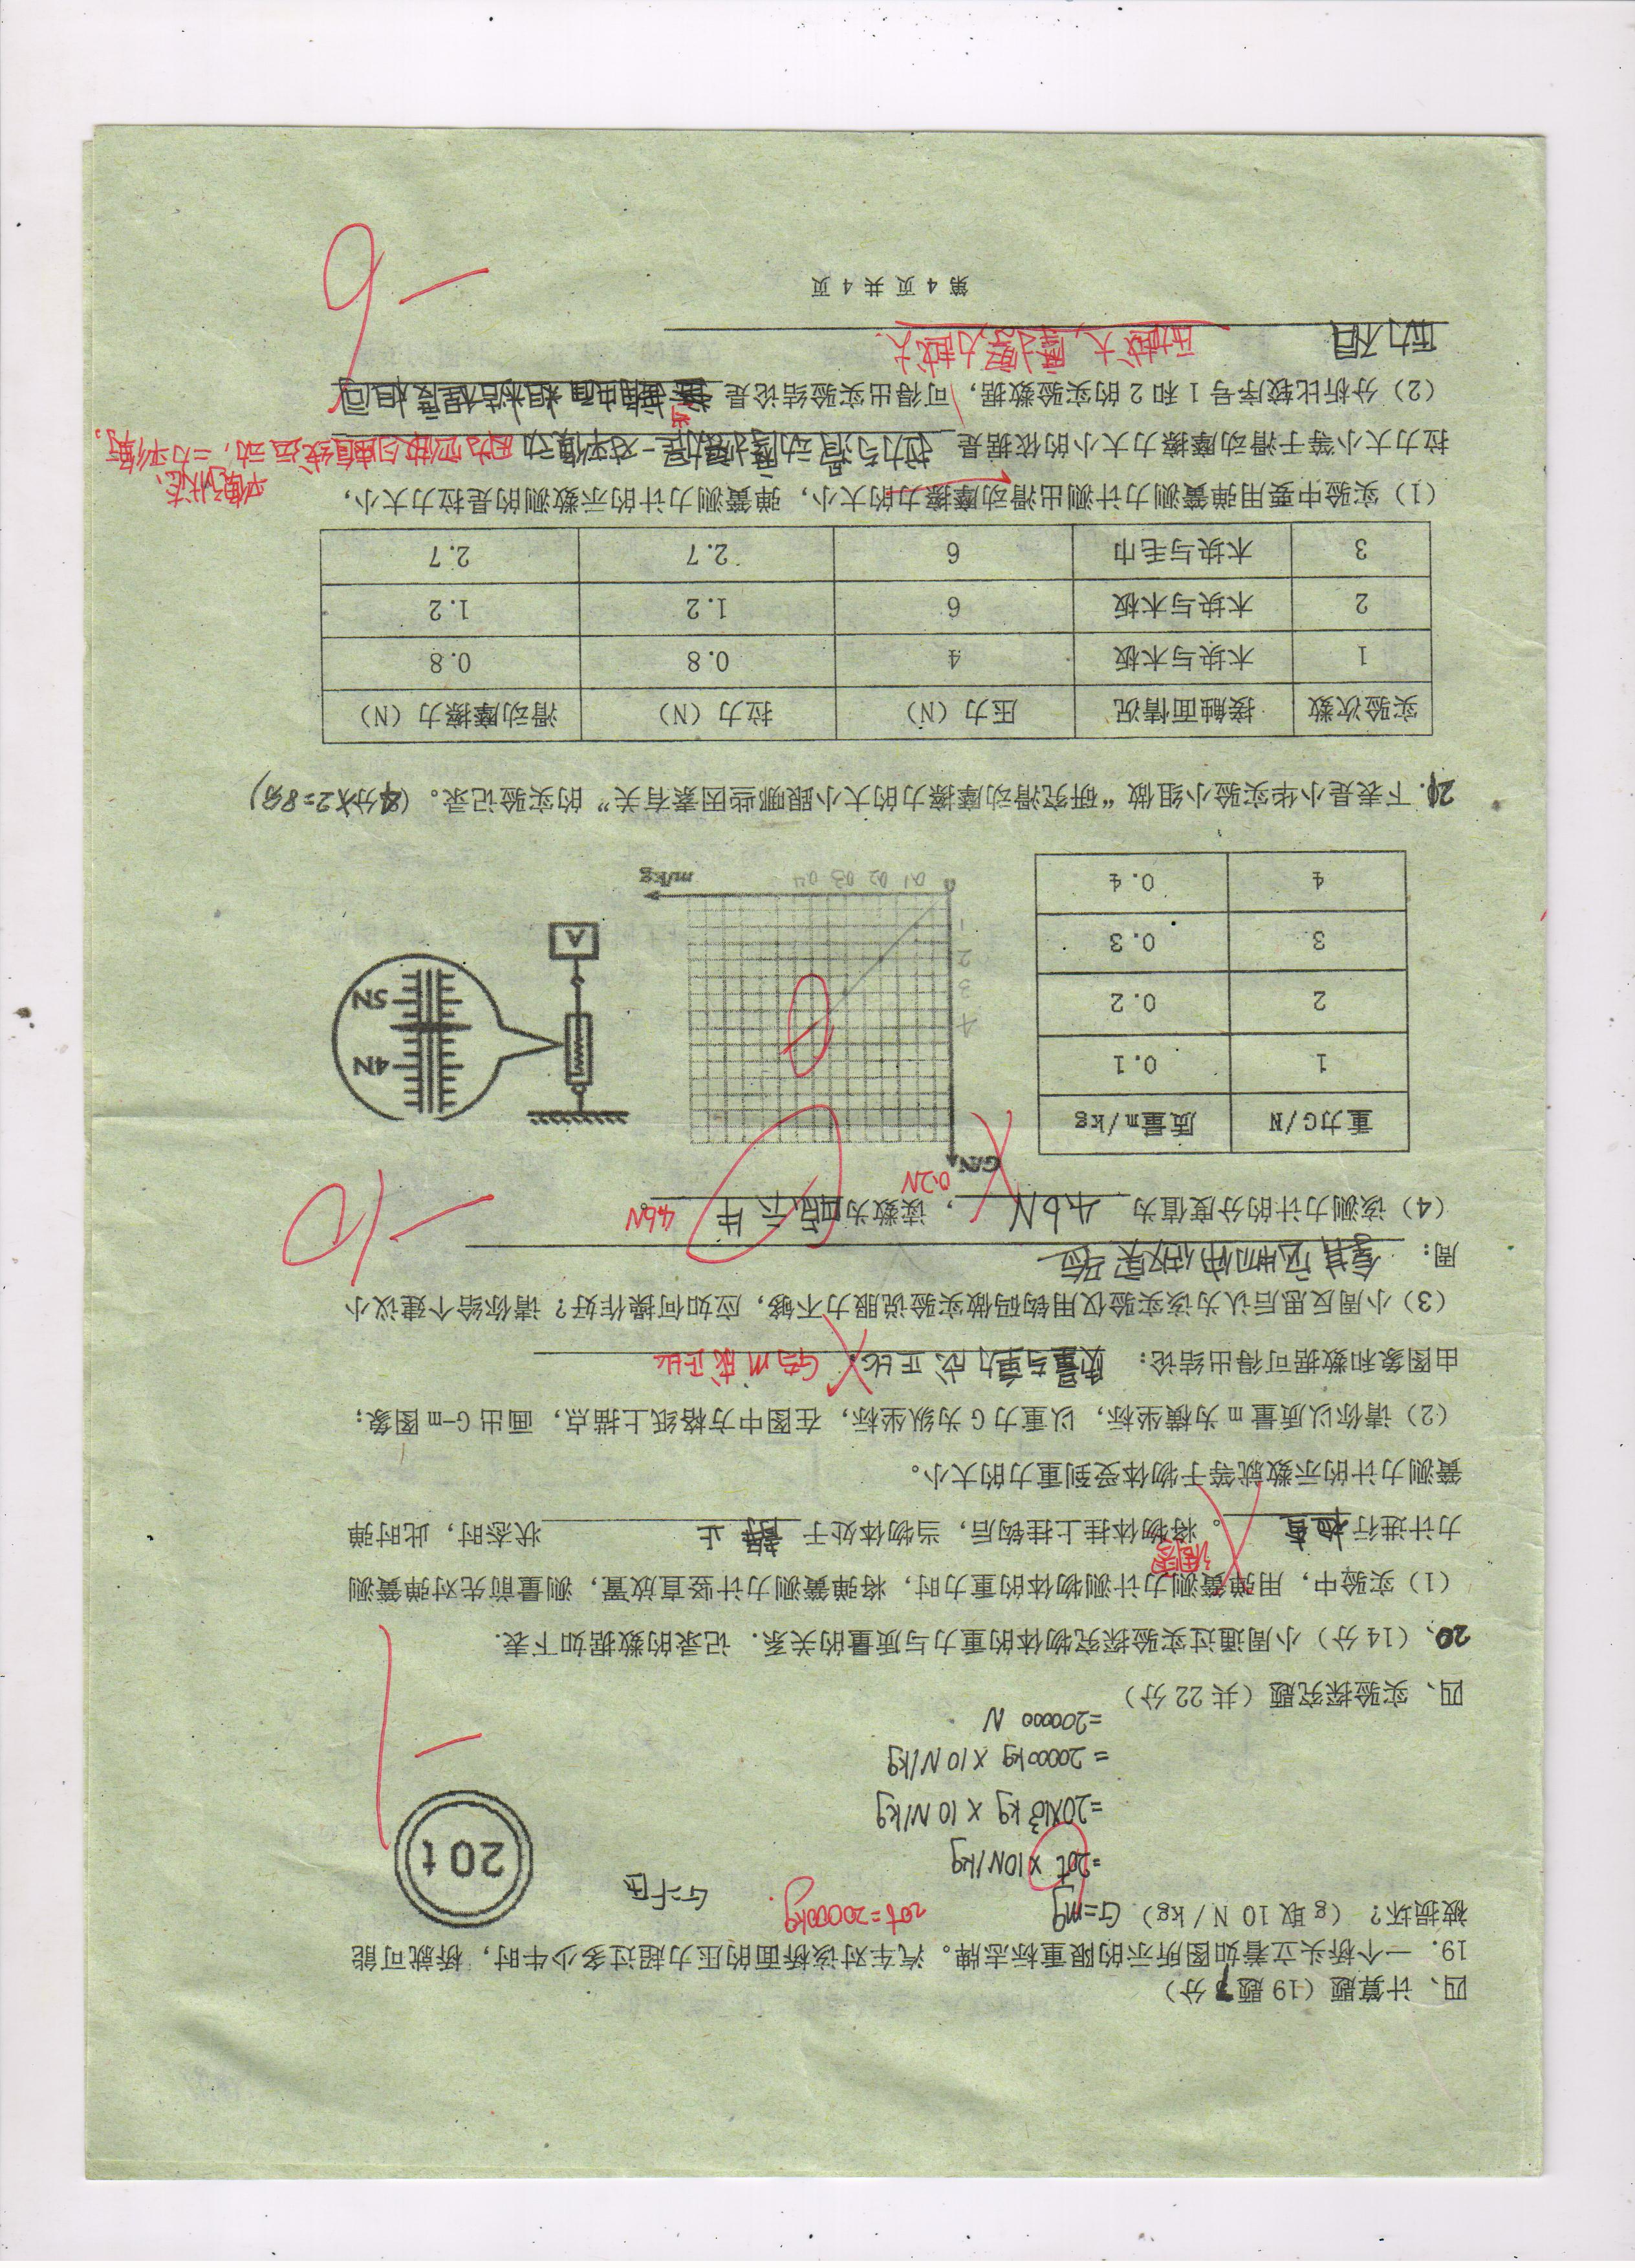 四、计算题（19题7分）
19. 一个桥头立着如图所示的限重标志牌。汽车对该桥面的压力超过多少牛时，桥就可能
被损坏？（g取10 N/kg） G=mg 20t=20000kg G=F压
=20t×10N/kg
=20×10³kg×10N/kg
=20000kg×10N/kg
=200000 N
20 t
四、实验探究题（共22分）
20、（14分）小周通过实验探究物体的重力与质量的关系．记录的数据如下表．
（1）实验中，用弹簧测力计测物体的重力时，将弹簧测力计竖直放置，测量前先对弹簧测
调零
力计进行检查。将物体挂上挂钩后，当物体处于 静止 状态时，此时弹
簧测力计的示数就等于物体受到重力的大小。
（2）请你以质量m为横坐标，以重力G为纵坐标，在图中方格纸上描点，画出G—m图象；
由图象和数据可得出结论： 质量与重力成正比． G与m成正比
（3）小周反思后认为该实验仅用钩码做实验说服力不够，应如何操作好？请你给个建议小
周：
（4）该测力计的分度值为 4.6N ，读数为 4.6N
0.2N
重力G/N 质量m/kg
1 0.1
2 0.2
3 0.3
4 0.4
G/N
4
3
2
1
0 0.1 0.2 0.3 0.4 m/kg
4N
5N
A
21. 下表是小华实验小组做“研究滑动摩擦力的大小跟哪些因素有关”的实验记录。（4分×2=8分）
实验次数 接触面情况 压力（N） 拉力（N） 滑动摩擦力（N）
1 木块与木板 4 0.8 0.8
2 木块与木板 6 1.2 1.2
3 木块与毛巾 6 2.7 2.7
（1）实验中要用弹簧测力计测出滑动摩擦力的大小，弹簧测力计的示数测的是拉力大小，
平衡状态，
拉力大小等于滑动摩擦力大小的依据是 拉力与滑动摩擦力是一对平衡力
（2）分析比较序号1和2的实验数据，可得出实验结论是 接触面粗糙程度相同
压力不同 压力越大，摩擦力越大．
第 4 页 共 4 页